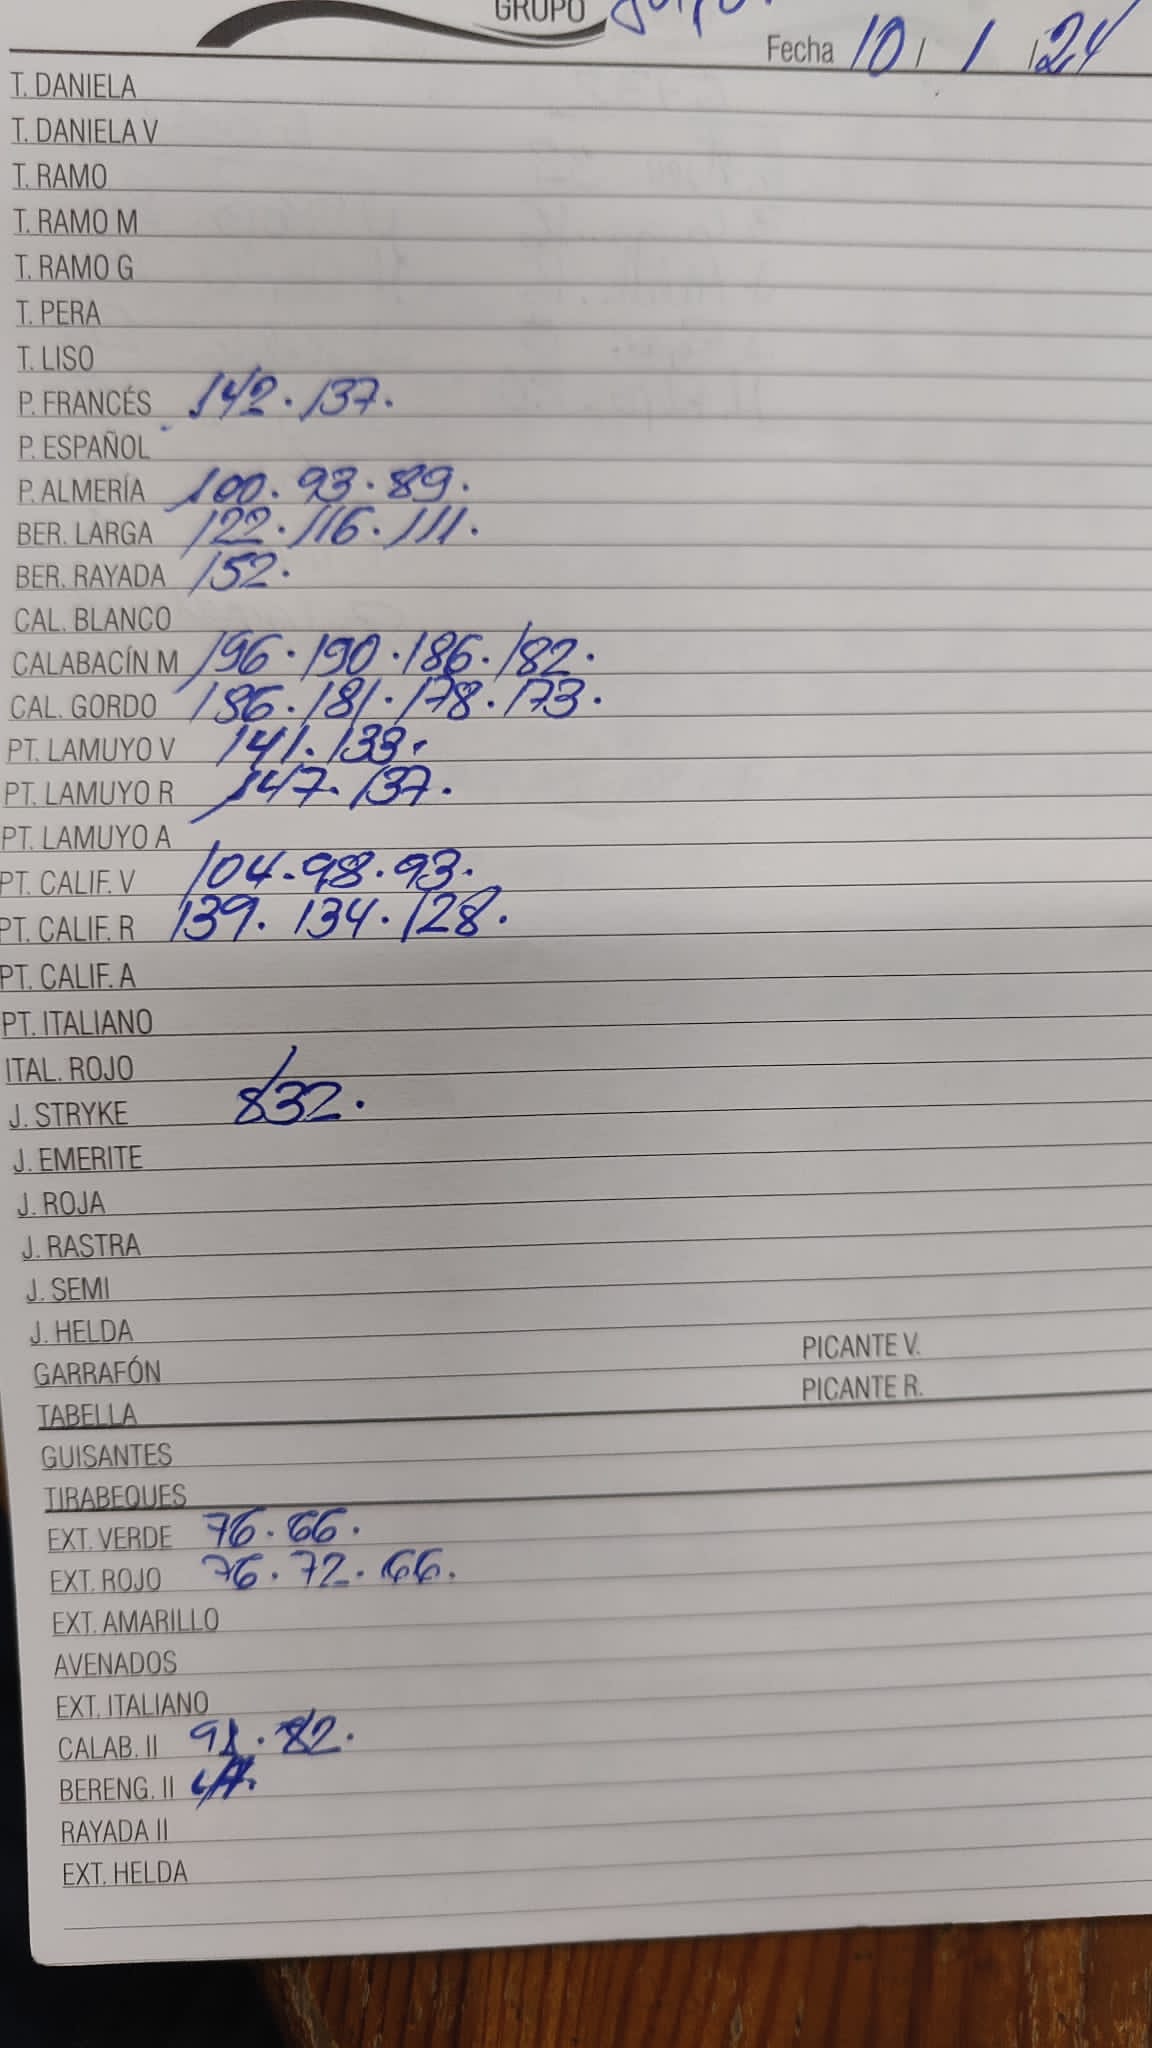 GRUPO
Fecha 10 / 1 / 24
T. DANIELA
T. DANIELA V
T. RAMO
T. RAMO M
T. RAMO G
T. PERA
T. LISO
P. FRANCÉS 142. 137.
P. ESPAÑOL
P. ALMERÍA 100. 93. 89.
BER. LARGA 122. 116. 111.
BER. RAYADA 152.
CAL. BLANCO
CALABACÍN M 196. 190. 186. 182.
CAL. GORDO 186. 181. 178. 173.
PT. LAMUYO V 141. 133.
PT. LAMUYO R 147. 137.
PT. LAMUYO A
PT. CALIF. V 104. 98. 93.
PT. CALIF. R 139. 134. 128.
PT. CALIF. A
PT. ITALIANO
ITAL. ROJO
J. STRYKE 832.
J. EMERITE
J. ROJA
J. RASTRA
J. SEMI
J. HELDA
GARRAFÓN PICANTE V.
TABELLA PICANTE R.
GUISANTES
TIRABEQUES
EXT. VERDE 76. 66.
EXT. ROJO 76. 72. 66.
EXT. AMARILLO
AVENADOS
EXT. ITALIANO
CALAB. II 82.
BERENG. II
RAYADA II
EXT. HELDA